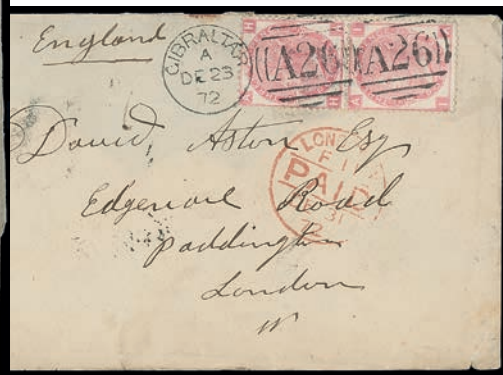 England
GIBRALTAR
A
DE 23
72
A26
A26
David, Aston Esq
LONDON
F 1
PAID
31
72
Edgware Road
Paddington
London
W